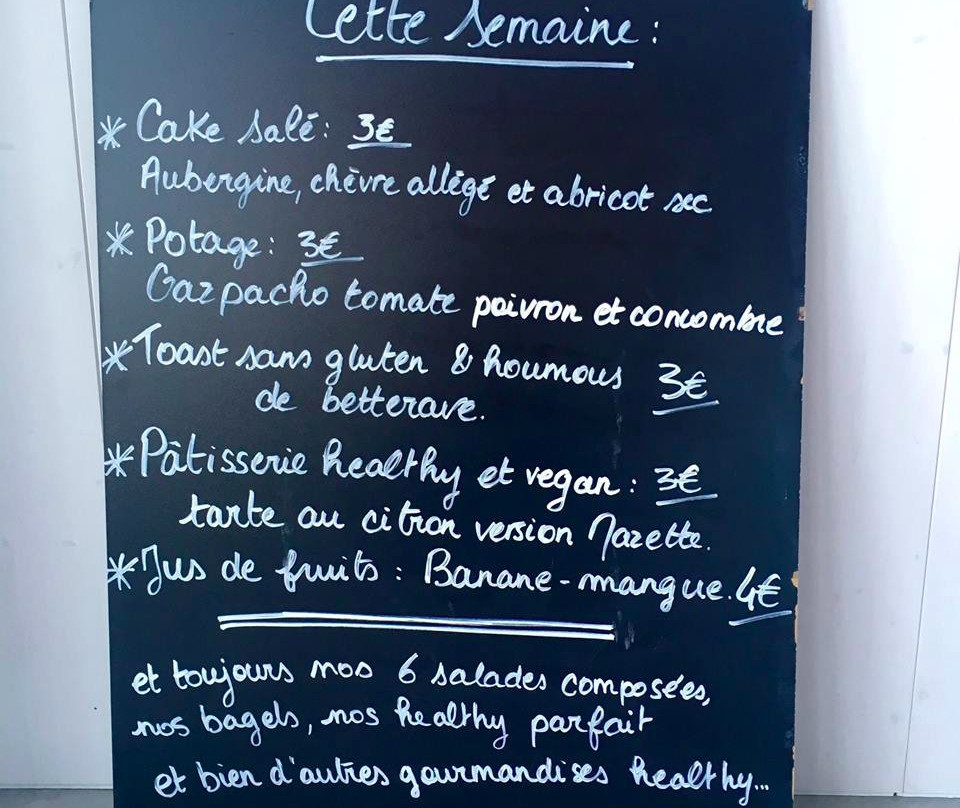 Cette Semaine :
* Cake salé : 3€
Aubergine, chèvre allégé et abricot sec
* Potage : 3€
Gazpacho tomate poivron et concombre
* Toast sans gluten & houmous 3€
de betterave.
* Pâtisserie healthy et vegan : 3€
tarte au citron version Mazette.
* Jus de fruits : Banane-mangue. 4€
et toujours nos 6 salades composées,
nos bagels, nos healthy parfait
et bien d'autres gourmandises healthy...